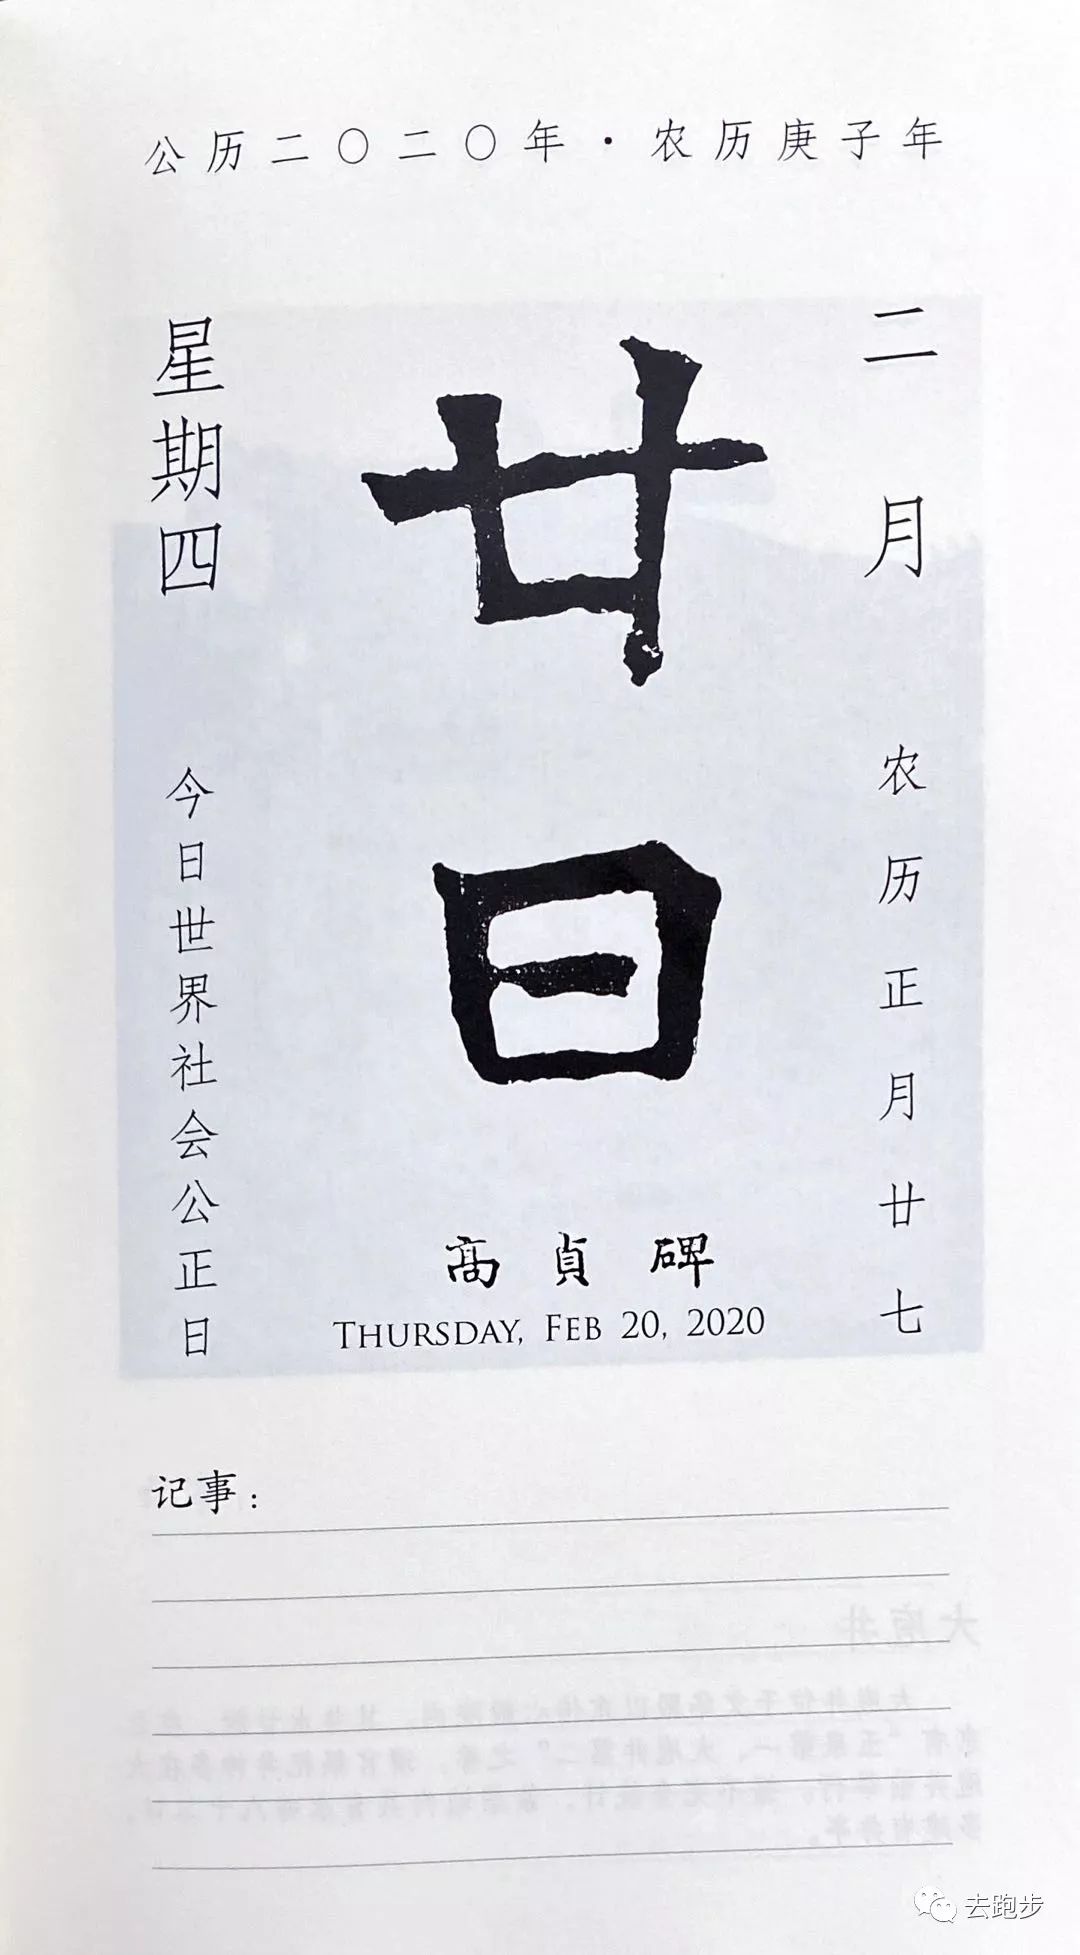 公历二〇二〇年·农历庚子年
二月
农历正月廿七
廿日
星期四
今日世界社会公正日
高贞碑
THURSDAY, FEB 20, 2020
记事：
去跑步